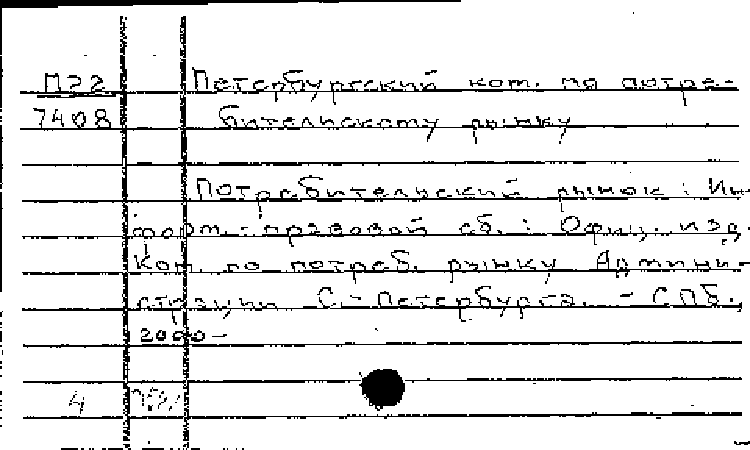 П22 Петербургский ком. по потре-
7408 бительскому рынку
Потребительский рынок : Ин-
форм.-правовой сб. : Офиц. изд.
Ком. по потреб. рынку Админи-
страции С.-Петербурга. - СПб.,
2000-
4